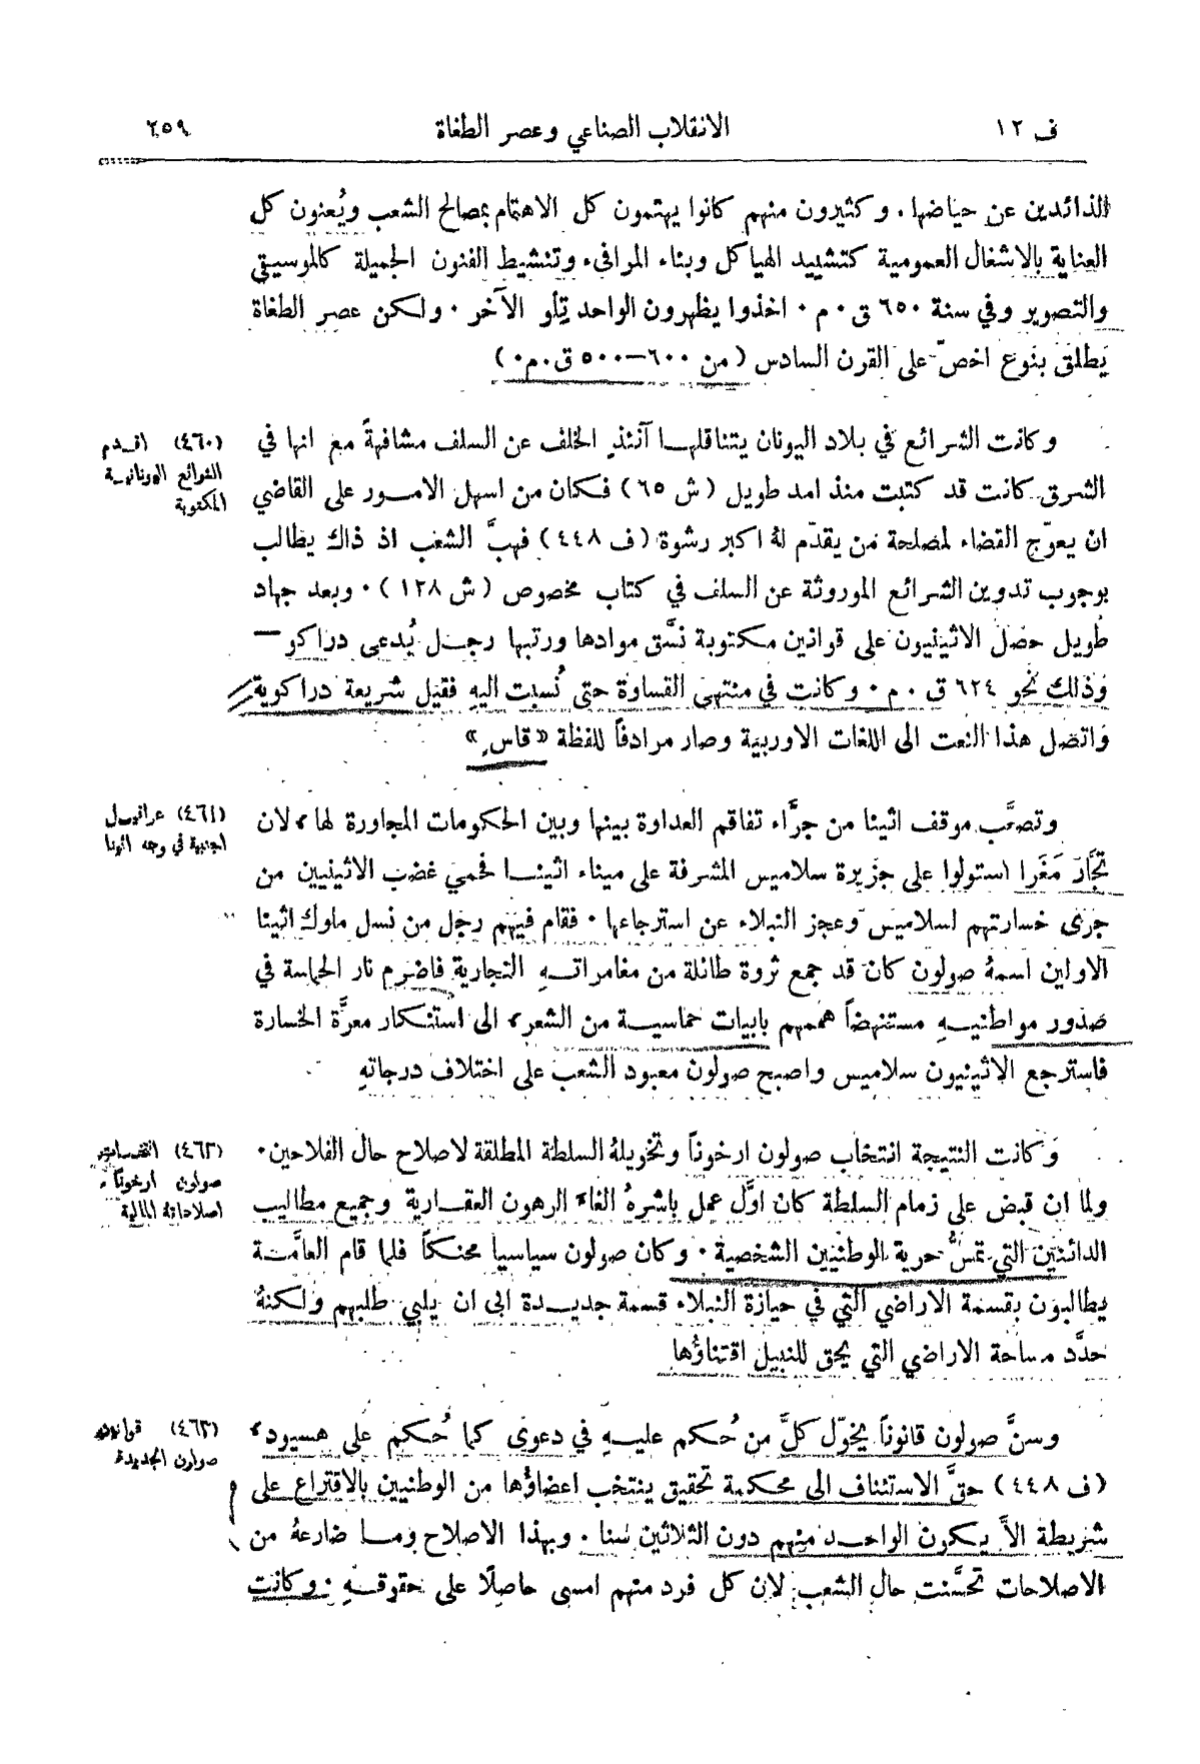 ف ١٢ الانقلاب الصناعي وعصر الطغاة ٢٥٩
الذائدين عن حياضها . وكثيرون منهم كانوا يهتمون كل الاهتمام بمصالح الشعب ويُعنون كل
العناية بالاشغال العمومية كتشييد الهياكل وبناء المرافىء وتنشيط الفنون الجميلة كالموسيقى
والتصوير وفي سنة ٦٥٠ ق . م . اخذوا يظهرون الواحد تِلو الآخر . ولكن عصر الطغاة
يطلق بنوع اخصّ على القرن السادس ( من ٦٠٠–٥٠٠ ق.م. )
(٤٦٠) اقدم
الشرائع اليونانية
المكتوبة
وكانت الشرائع في بلاد اليونان يتناقلها آنئذٍ الخلف عن السلف مشافهةً مع انها في
الشرق كانت قد كتبت منذ امد طويل ( ش ٦٥ ) فكان من اسهل الامور على القاضي
ان يعوّج القضاء لمصلحة من يقدّم لهُ اكبر رشوة ( ف ٤٤٨ ) فهبَّ الشعب اذ ذاك يطالب
بوجوب تدوين الشرائع الموروثة عن السلف في كتاب مخصوص ( ش ١٢٨ ) . وبعد جهاد
طويل حصل الاثينيون على قوانين مكتوبة نسَّق موادها ورتبها رجل يُدعى دراكو —
وذلك نحو ٦٢٤ ق . م . وكانت في منتهى القساوة حتى نُسبت اليهِ فقيل شريعة دراكوية
واتصل هذا النعت الى اللغات الاوربية وصار مرادفاً للفظة « قاس »
(٤٦١) عراقيل
اجنبية في وجه اثينا
وتصعَّب موقف اثينا من جرَّاء تفاقم العداوة بينها وبين الحكومات المجاورة لها ، لان
تجَّار مَغَرا استولوا على جزيرة سلاميس المشرفة على ميناء اثينا فحمي غضب الاثينيين من
جرى خسارتهم لسلاميس وعجز النبلاء عن استرجاعها . فقام فيهم رجل من نسل ملوك اثينا
الاولين اسمهُ صولون كان قد جمع ثروة طائلة من مغامراتهِ التجارية فاضرم نار الحماسة في
صدور مواطنيهِ مستنهضاً هممهم بابيات حماسية من الشعر ، الى استنكار معرَّة الخسارة
فاسترجع الاثينيون سلاميس واصبح صولون معبود الشعب على اختلاف درجاتهِ
(٤٦٢) انتخاب
صولون ارخوناً ،
اصلاحاته المالية
وكانت النتيجة انتخاب صولون ارخوناً وتخويلهُ السلطة المطلقة لاصلاح حال الفلاحين .
ولما ان قبض على زمام السلطة كان اوَّل عمل باشرهُ الغاء الرهون العقارية وجميع مطاليب
الدائنين التي تمسُّ حرية الوطنيين الشخصية . وكان صولون سياسياً محنكاً فلما قام العامَّة
يطالبون بقسمة الاراضي التي في حيازة النبلاء قسمة جديدة ابى ان يلبي طلبهم ولكنهُ
حدَّد مساحة الاراضي التي يحق للنبيل اقتناؤها
(٤٦٣) قوانين
صولون الجديدة
وسنَّ صولون قانوناً يخوّل كلَّ من حُكم عليهِ في دعوى كما حُكم على هسيود ،
( ف ٤٤٨ ) حقَّ الاستئناف الى محكمة تحقيق ينتخب اعضاؤها من الوطنيين بالاقتراع على
شريطة الاَّ يكون الواحد منهم دون الثلاثين سناً . وبهذا الاصلاح وما ضارعهُ من
الاصلاحات تحسَّنت حال الشعب لان كل فرد منهم امسى حاصلًا على حقوقهِ . وكانت